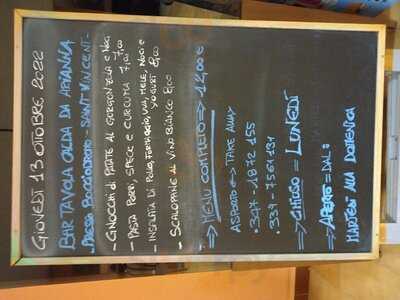 GIOVEDÌ 13 OTTOBRE 2022
BAR TAVOLA CALDA DA ARIANNA
PRESSO BOCCIODROMO - SAINT VINCENT -
- GNOCCHI DI PATATE AL GORGONZOLA E NOCI
7,00
- PASTA PORRI, SPECK E CURCUMA 7,00
- INSALATA DI POLLO, FORMAGGIO, UVA, MELE, NOCI E
YOGURT 8,00
- SCALOPPINE AL VINO BIANCO 8,00
=> MENU COMPLETO => 12,00 €
ASPORTO => TAKE AWAY
.347-1872 155
.339-7561131
=> CHIUSO = LUNEDÌ
=> APERTO - DAL:
MARTEDÌ ALLA DOMENICA